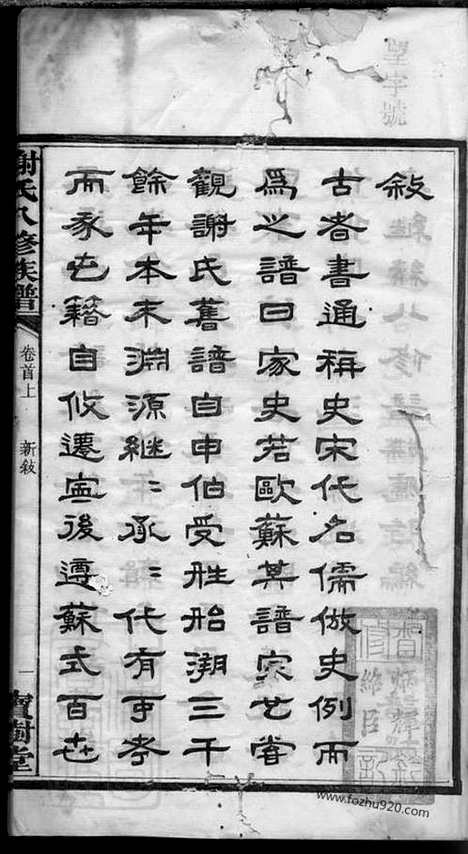 望字號
敘
古者書通稱史宋代名儒倣史例而
爲之譜曰家史若歐蘇其譜宗也嘗
觀謝氏舊譜自申伯受姓胎溯三千
餘年本末淵源繼〻承〻代有可考
而豕屯籍自攸遷寍後遵蘇式百世
謝氏八修族譜
卷首上
新敘
一
寶樹堂
www.fozhu920.com